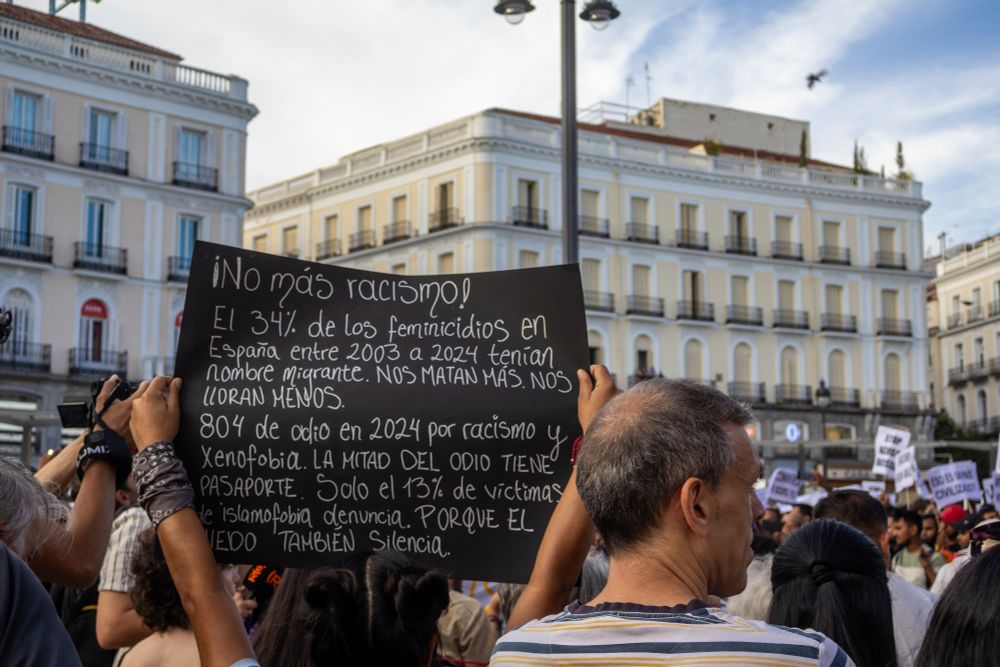 ¡No más racismo!
El 34% de los feminicidios en
España entre 2003 a 2024 tenían
nombre migrante. NOS MATAN MÁS. NOS
LLORAN MENOS.
804 de odio en 2024 por racismo y
Xenofobia. LA MITAD DEL ODIO TIENE
PASAPORTE. Solo el 13% de víctimas
de islamofobia denuncia. PORQUE EL
IEDO TAMBIÉN Silencia.
STOP